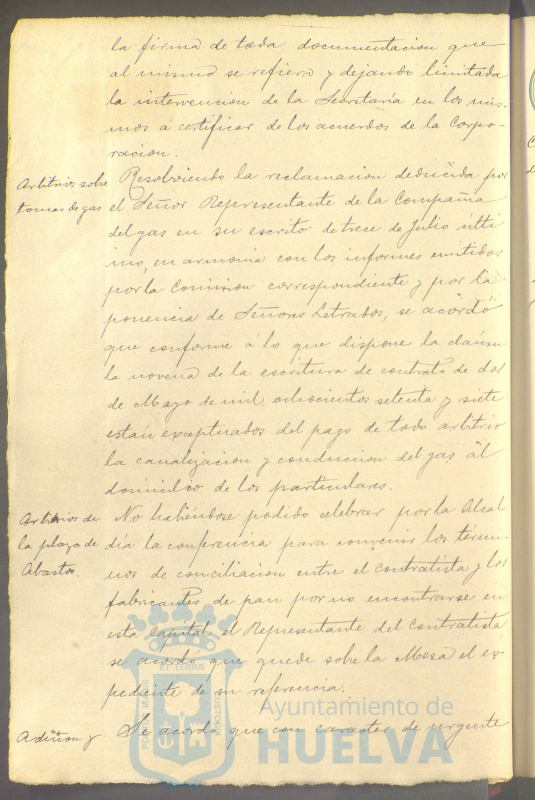 la firma de toda documentacion que
al mismo se refiera y dejando limitada
la intervencion de la Secretaría en los mis-
mos á certificar de los acuerdos de la Corpo-
racion.
Arbitrios sobre
tomas de gas
Resolviendo la reclamacion deducida por
el Señor Representante de la Compañia
del gas en su escrito de trece de Julio últi
mo, en armonia con los informes emitidos
por la Comision correspondiente y por la
ponencia de Señores Letrados, se acordó
que conforme á lo que dispone la cláusu
la novena de la escritura de contrato de dos
de Mayo de mil ochocientos setenta y siete
estan exceptuados del pago de todo arbitrio
la canalizacion y conduccion del gas al
domicilio de los particulares.
Arbitrios de
la plaza de
Abastos.
No habiéndose podido celebrar por la Alcal
día la conferencia para convenir los térmi-
nos de conciliacion entre el contratista y los
fabricantes de pan por no encontrarse en
esta Capital el Representante del Contratista
se acordó que quede sobre la Mesa el ex-
pediente de su referencia.
Adicion y
Se acordó que con caracter de urgente
Ayuntamiento de
HUELVA
PORTUS MARIS
ET TERRÆ
CUSTODIA